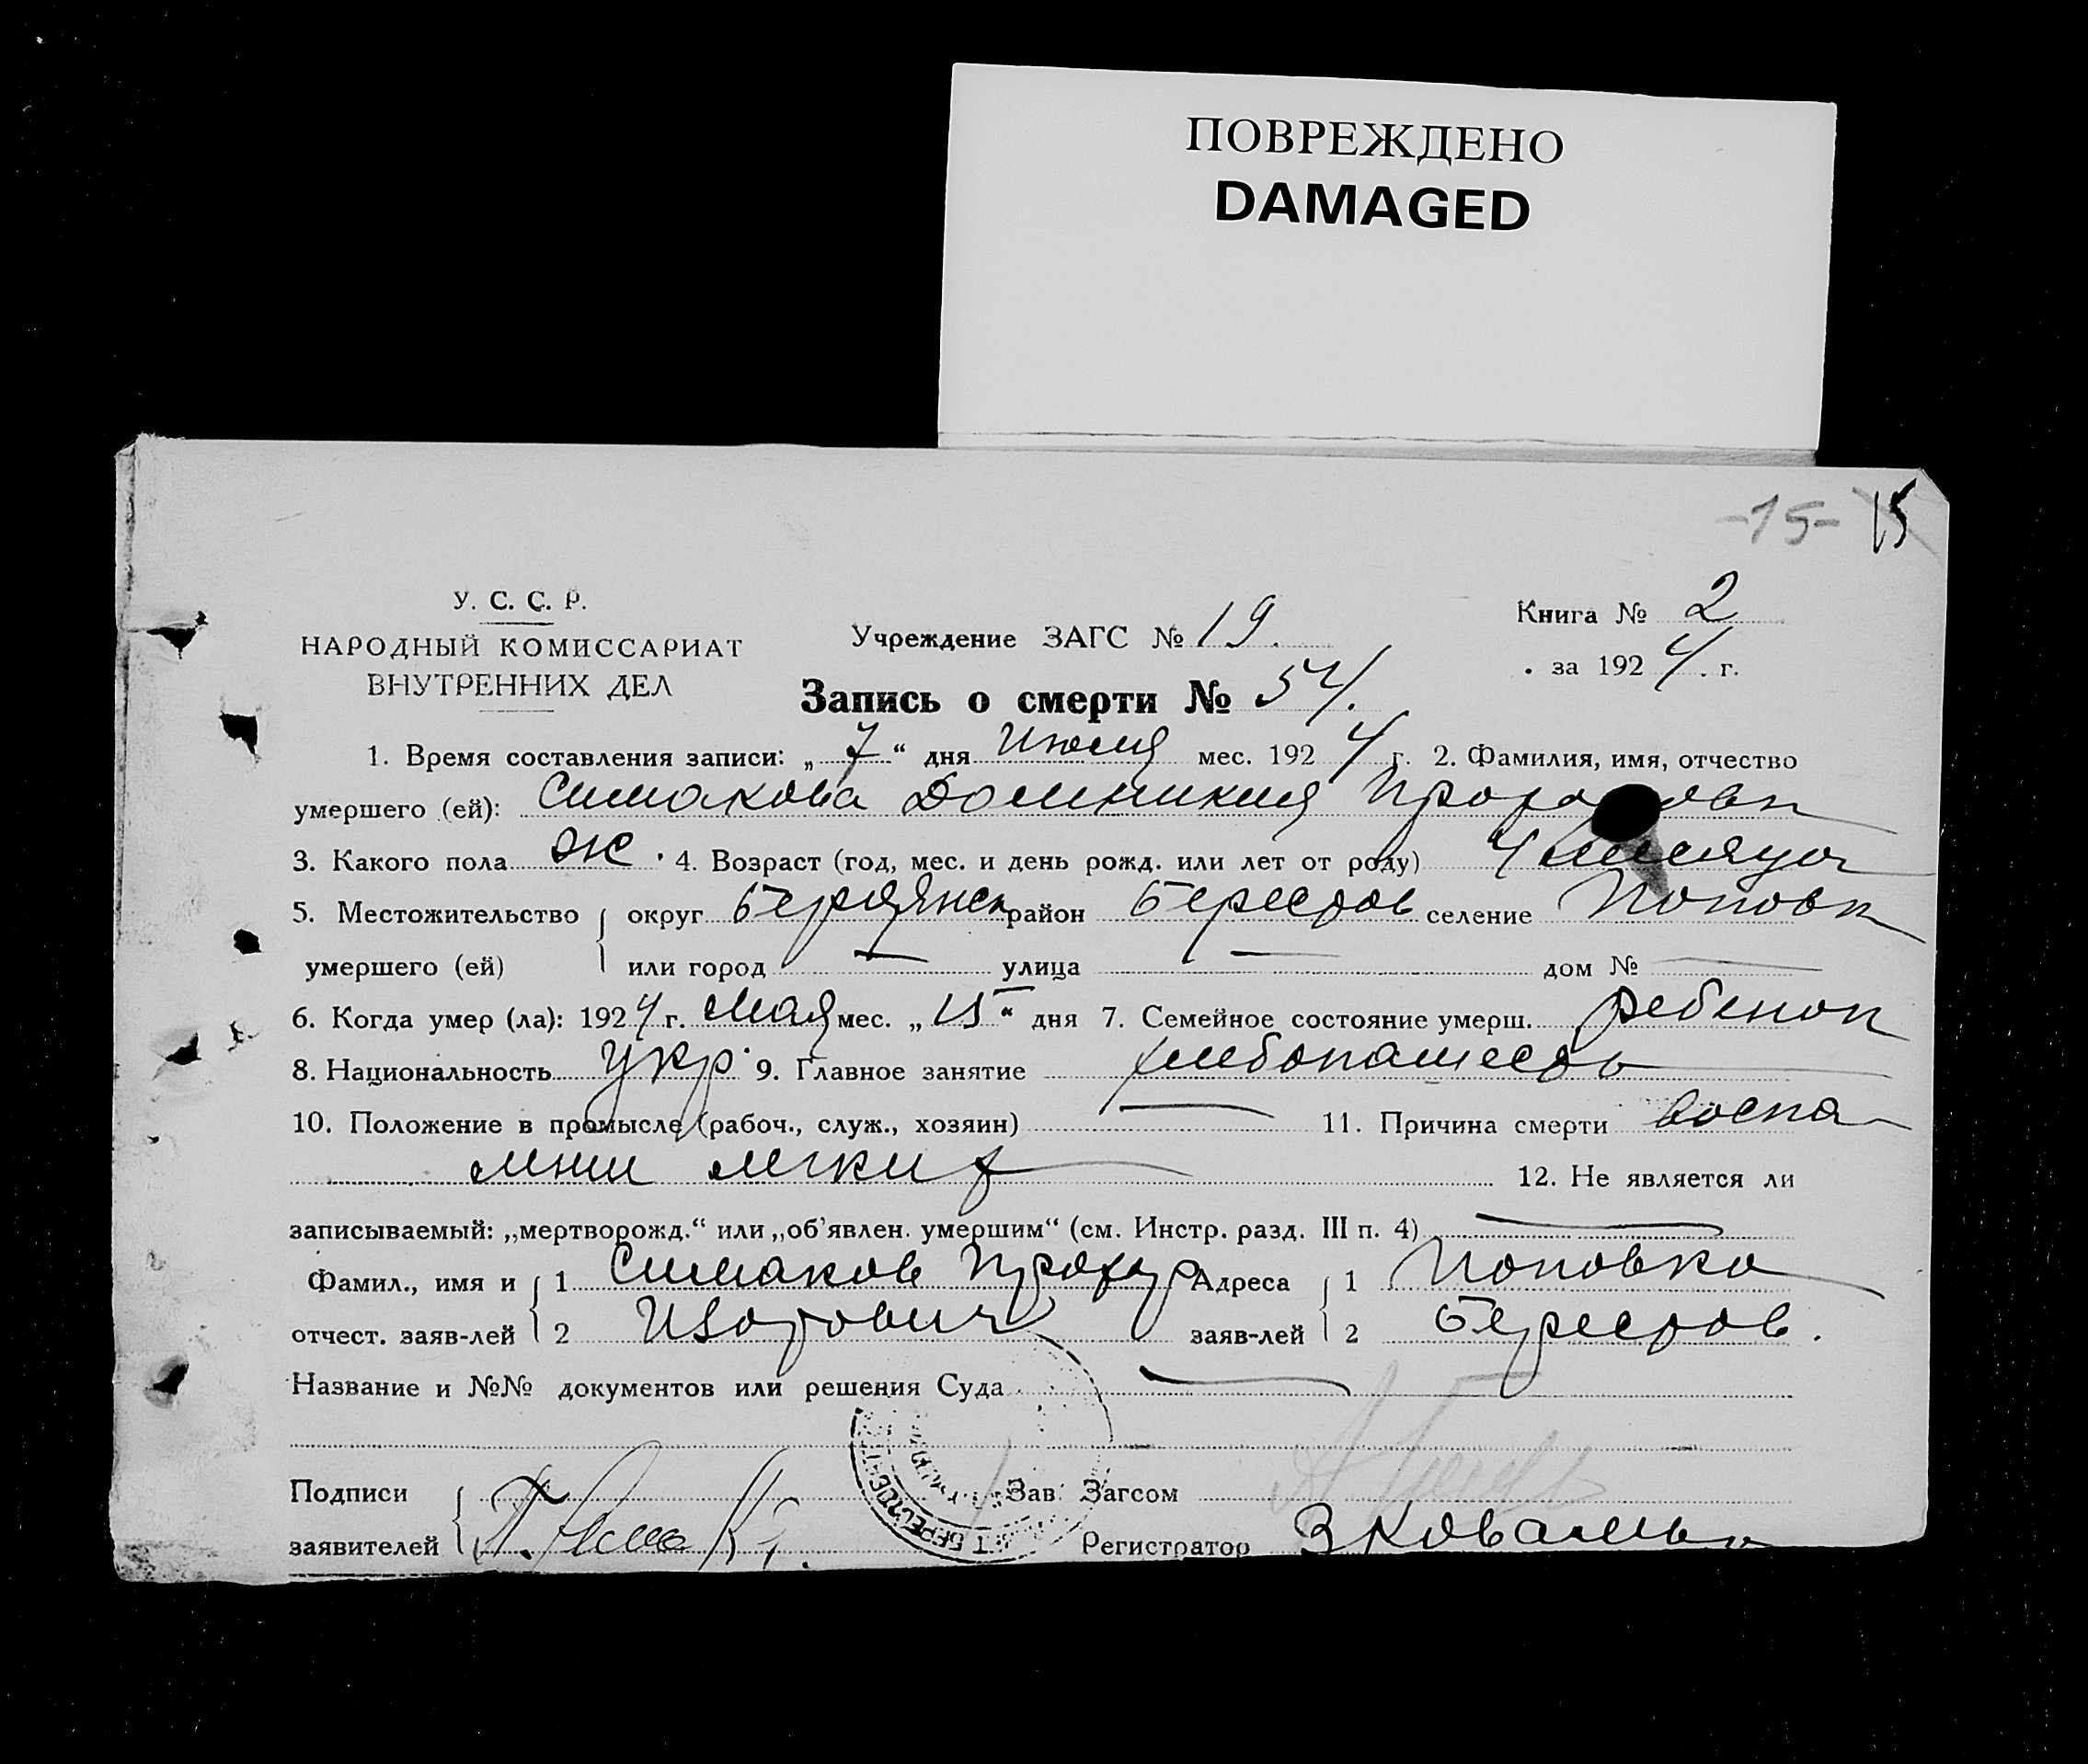 ПОВРЕЖДЕНО
DAMAGED
-15- 15
У. С. С. Р.
НАРОДНЫЙ КОМИССАРИАТ
ВНУТРЕННИХ ДЕЛ
Учреждение ЗАГС № 19.
Книга № 2
за 1924 г.
Запись о смерти № 54.
1. Время составления записи: „7“ дня Июля мес. 1924 г. 2. Фамилия, имя, отчество
умершего (ей): Симакова Домникия
3. Какого пола Ж. 4. Возраст (год, мес. и день рожд. или лет от роду) 4 месяца
5. Местожительство округ Бердянск район Берестов селение Поповк
умершего (ей) или город — улица — дом № —
6. Когда умер (ла): 1924 г. Мая мес. „15“ дня 7. Семейное состояние умерш. ребенок
8. Национальность укр. 9. Главное занятие хлебопашество
10. Положение в промысле (рабоч., служ., хозяин) — 11. Причина смерти воспа
лени легких
12. Не является ли
записываемый: „мертворожд.“ или „об'явлен. умершим“ (см. Инстр. разд. III п. 4) —
Фамил., имя и 1 Симаков Прохор Адреса 1 Поповка
отчест. заяв-лей 2 заяв-лей 2 Берестов.
Название и №№ документов или решения Суда —
Подписи Зав. Загсом
заявителей Регистратор